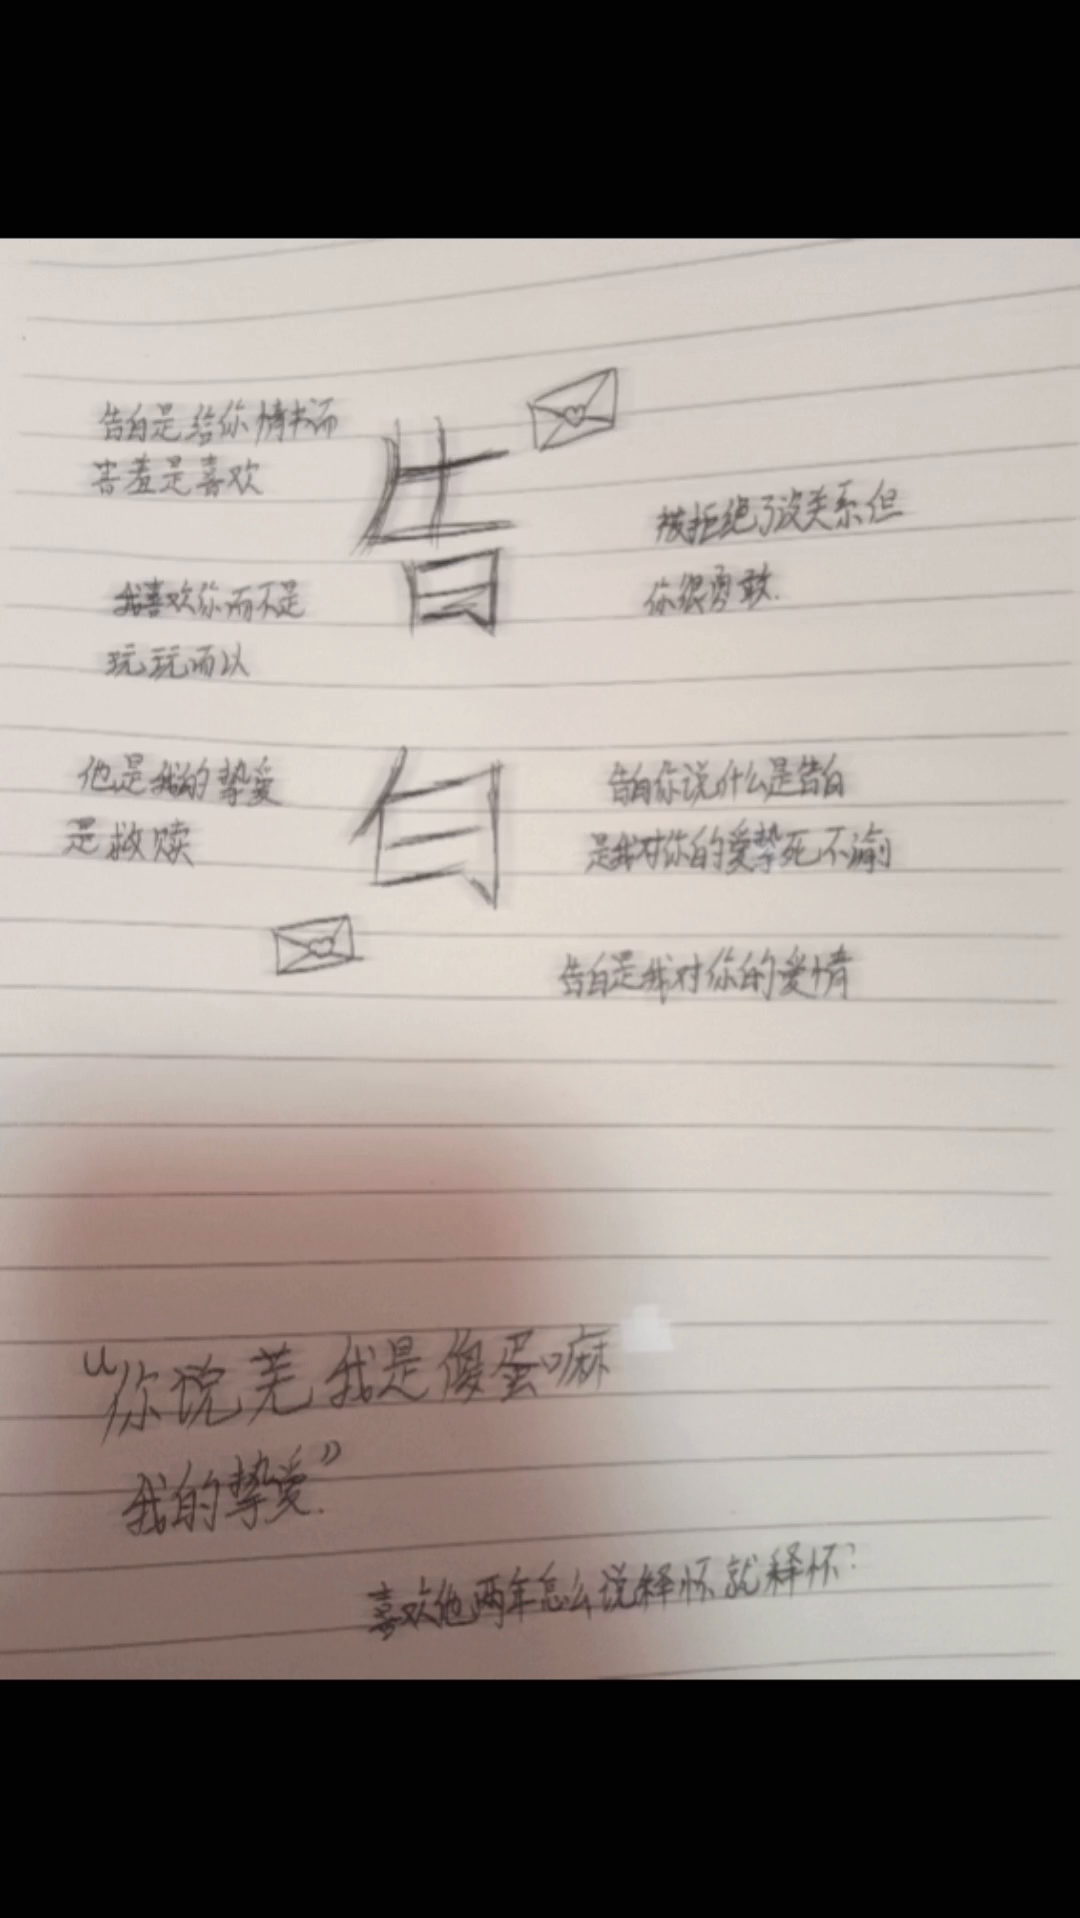 告白是给你情书而
害羞是喜欢
告
被拒绝了没关系但
你很勇敢.
我喜欢你而不是
玩玩而以
他是我的挚爱
是救赎
白
告白你说什么是告白
是我对你的爱挚死不渝
告白是我对你的爱情
“你说羌我是傻蛋嘛
我的挚爱”.
喜欢他两年怎么说释怀就释怀?